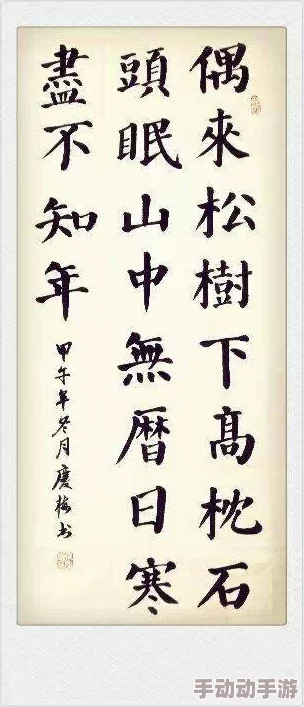 偶來松樹下髙枕石
頭眠山中無曆日寒
盡不知年
甲午年冬月慶梅书
手动动手游